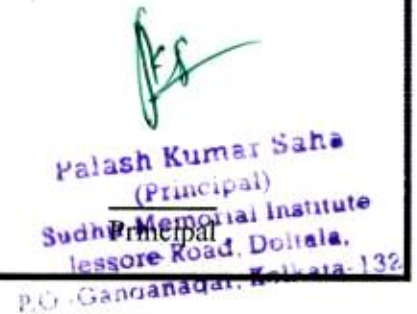 Palash Kumar Saha
(Principal)
Sudhir Memorial Institute
Principal
Jessore Road, Doltala,
P.O.-Ganganagar, Kolkata-132